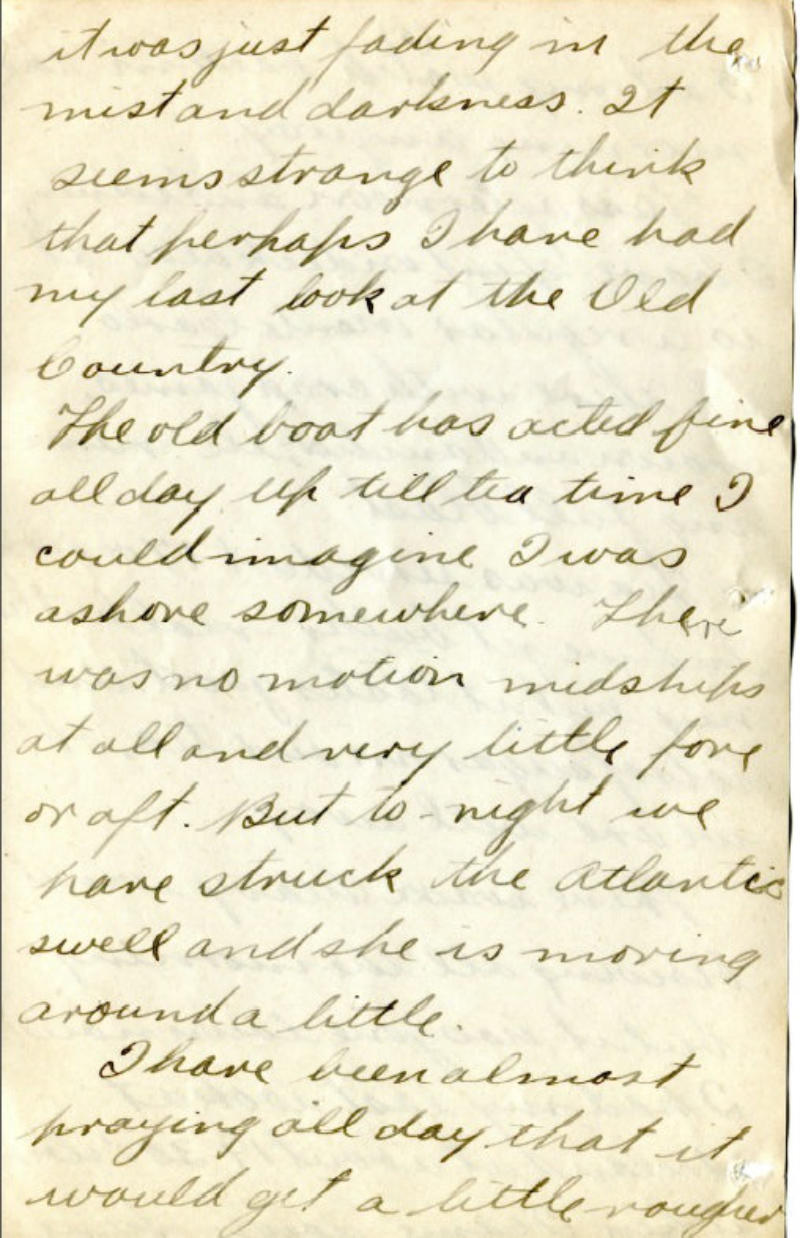 it was just fading in the
mist and darkness. It
seems strange to think
that perhaps I have had
my last look at the Old
Country.
The old boat has acted fine
all day up till tea time I
could imagine I was
ashore somewhere. There
was no motion midships
at all and very little fore
or aft. But to-night we
have struck the Atlantic
swell and she is moving
around a little.
I have been almost
praying all day that it
would get a little rougher